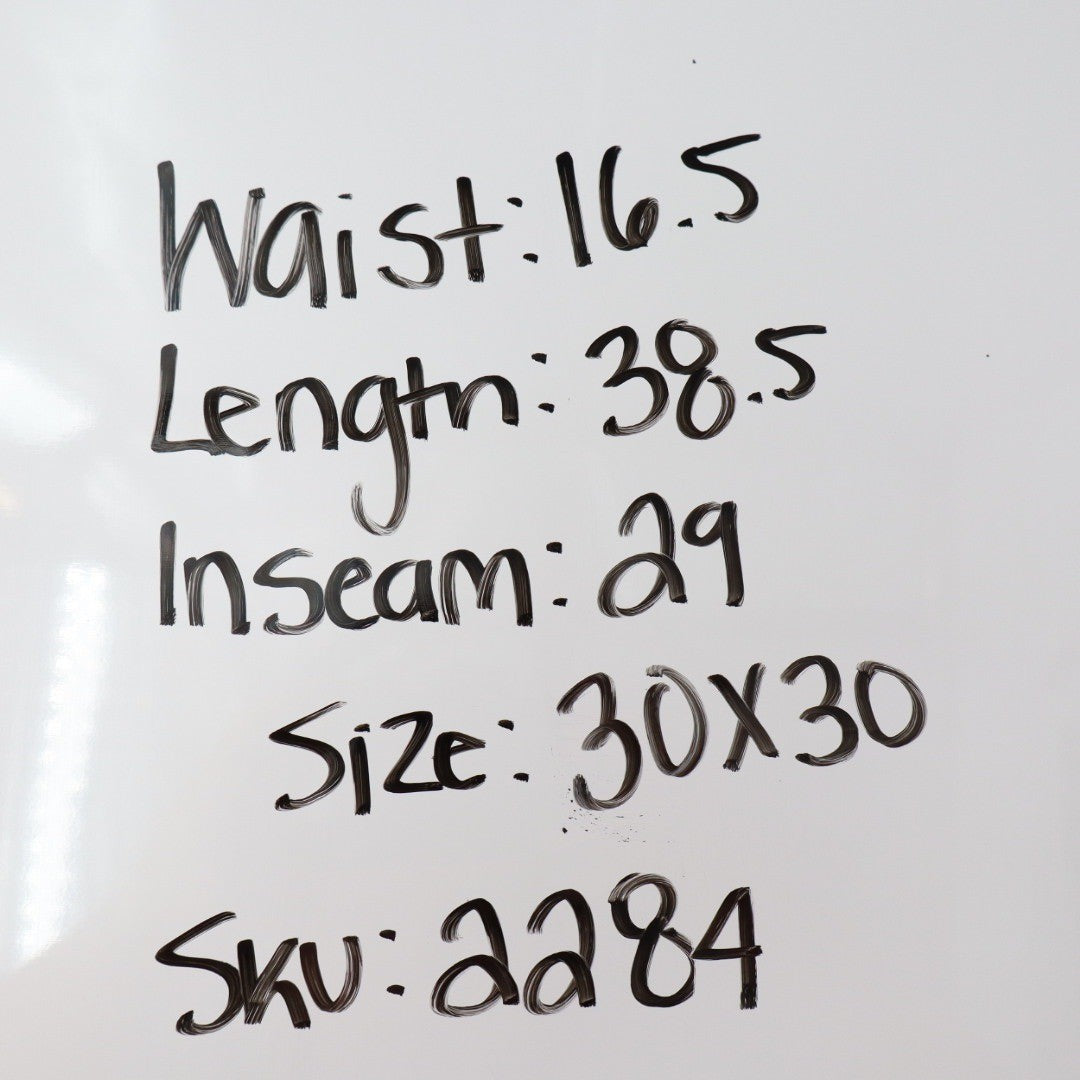 Waist: 16.5
Length: 38.5
Inseam: 29
Size: 30X30
SKU: 2284